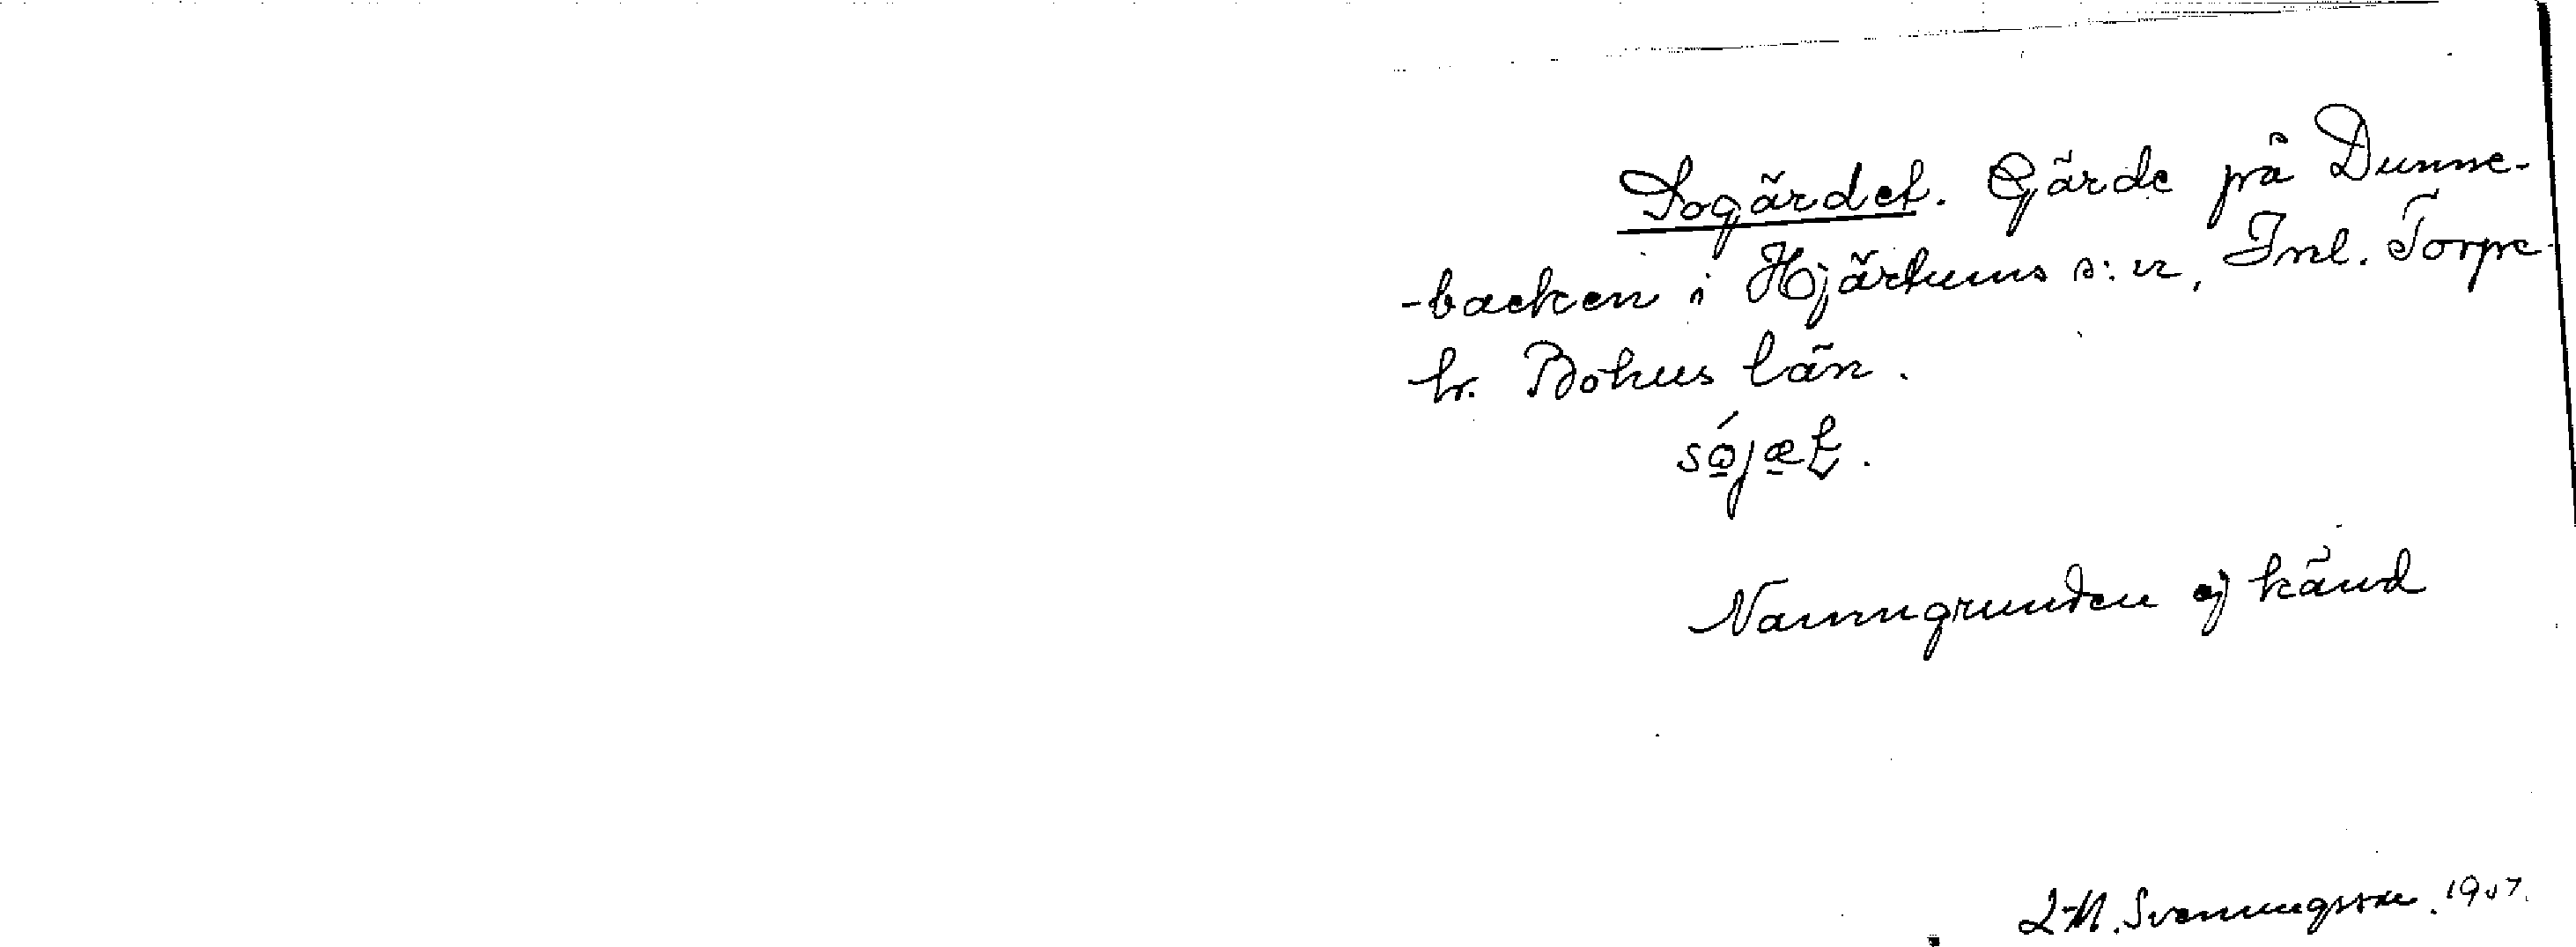 Sogärdet. Gärde på Dunne-
-backen i Hjärtums s:n, Inl. Torpe
hr. Bohus län.
sǿjæt.
Namngrunden ej känd
L-M. Svenungsson. 1907.